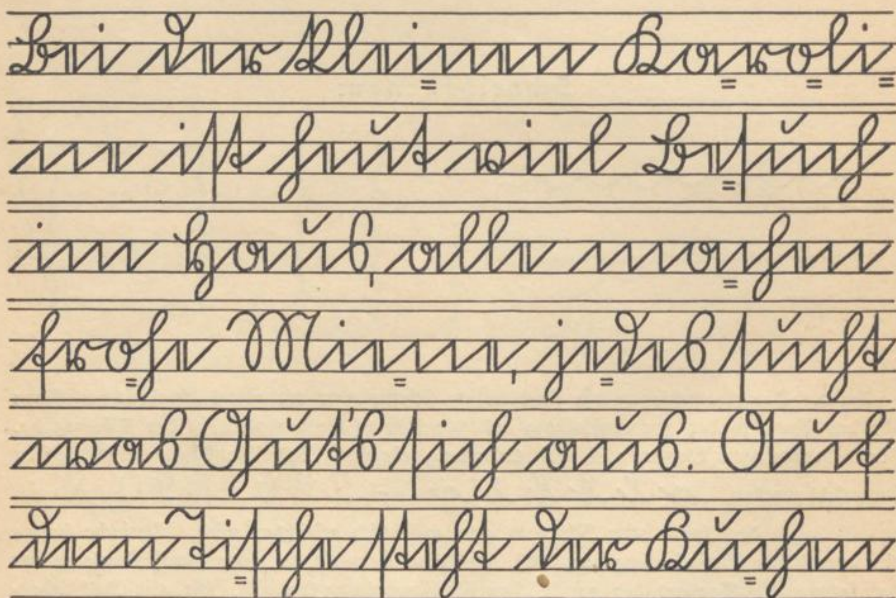 Bei der kleinen Karoli=
ne ist heut viel Besuch
im Haus, alle machen
frohe Miene, jedes sucht
was Gut's sich aus. Auf
dem Tische steht der Kuchen